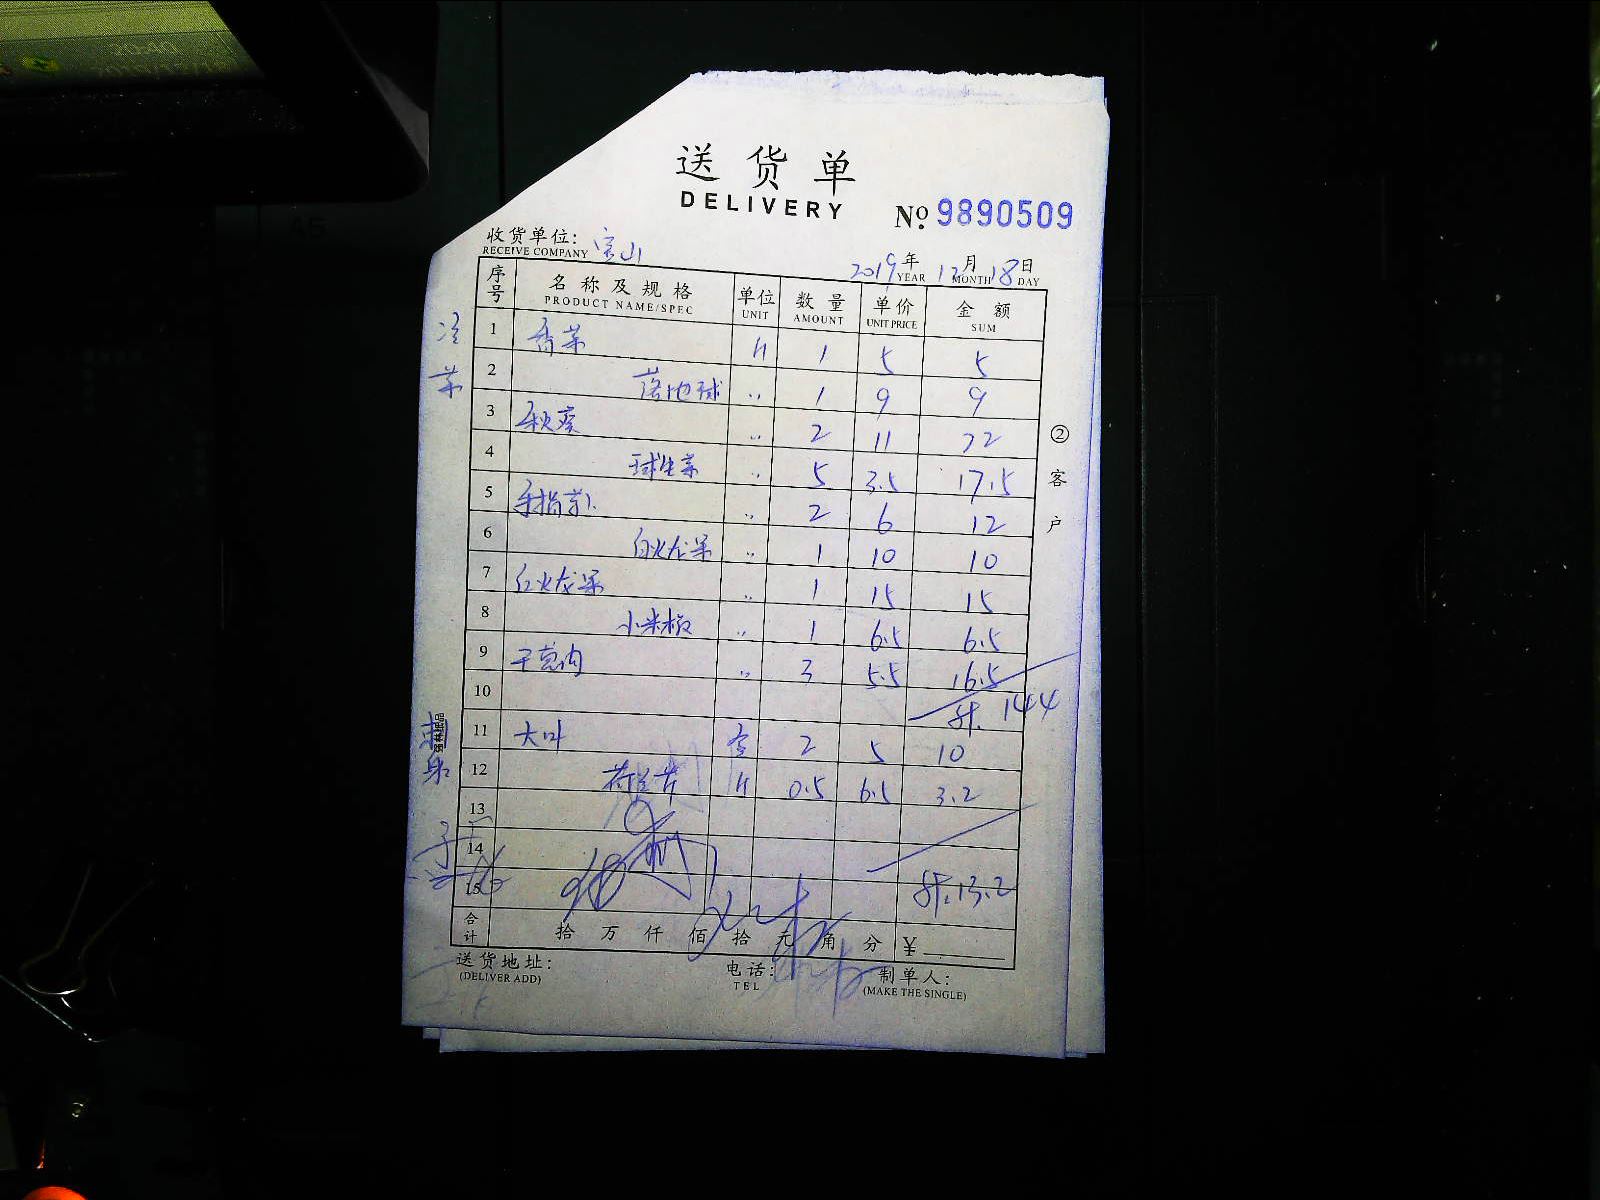 送货单
DELIVERY
№ 9890509
收货单位: 宝山
RECEIVE COMPANY
2019年 12月 18日
YEAR MONTH DAY
序号 名称及规格 单位 数量 单价 金额
PRODUCT NAME/SPEC UNIT AMOUNT UNIT PRICE SUM
冷菜
1 香菜 斤 1 5 5
2 落地球 〃 1 9 9
3 秋葵 〃 2 11 22
4 球生菜 〃 5 3.5 17.5
5 手指萝卜 〃 2 6 12
6 白火龙果 〃 1 10 10
7 红火龙果 〃 1 15 15
8 小米椒 〃 1 6.5 6.5
9 干葱肉 〃 3 5.5 16.5
10
计. 144
刺身
11 大叶 2 5 10
12 荷兰芹 斤 0.5 6.5 3.2
13
14
15
计. 13.2
合计 拾 万 仟 佰 拾 元 角 分 ¥
送货地址:
(DELIVER ADD)
电话:
TEL
制单人:
(MAKE THE SINGLE)
②客户